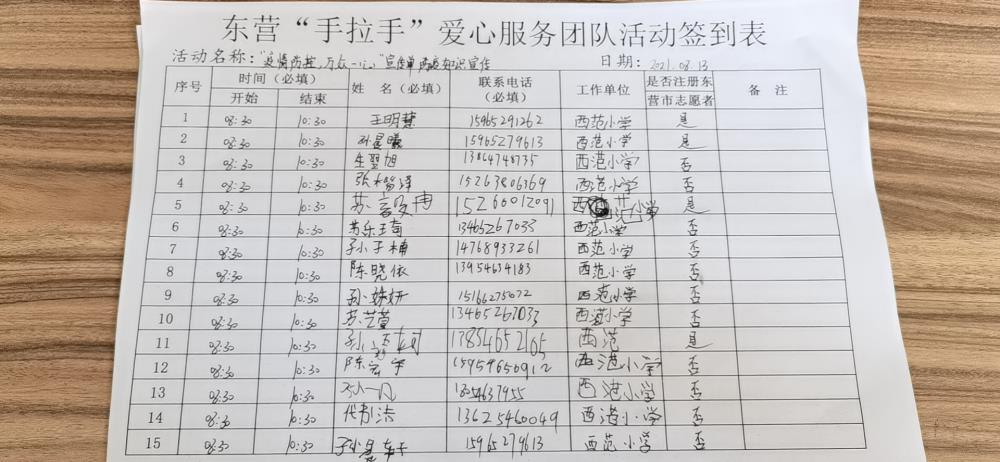 东营“手拉手”爱心服务团队活动签到表
活动名称：“疫情防控，万众一心”宣传单 防疫知识宣传 日期：2021.08.13
序号 时间（必填） 姓 名（必填） 联系电话（必填） 工作单位 是否注册东营市志愿者 备 注
开始 结束
1 08:30 10:30 王明慧 15965291262 西范小学 是
2 08:30 10:30 孙晨曦 15965279613 西范小学 是
3 08:30 10:30 生翌旭 13864748735 西范小学 否
4 08:30 10:30 张 泽 15263806369 西范小学 否
5 08:30 10:30 苏 15266012091 西范小学 是
6 08:30 10:30 苏乐 13465267033 西范小学 否
7 08:30 10:30 孙子楠 14768933261 西范小学 否
8 08:30 10:30 陈晓依 13954634183 西范小学 否
9 08:30 10:30 孙姝妍 15166275072 西范小学 否
10 08:30 10:30 苏艺萱 13465267033 西范小学 否
11 08:30 10:30 孙 13854652165 西范 是
12 08:30 10:30 陈宏宇 15959650912 西范小学 否
13 08:30 10:30 18054637955 西范小学 否
14 08:30 10:30 代书洁 13625460049 西范小学 否
15 08:30 10:30 15965279613 西范小学 否